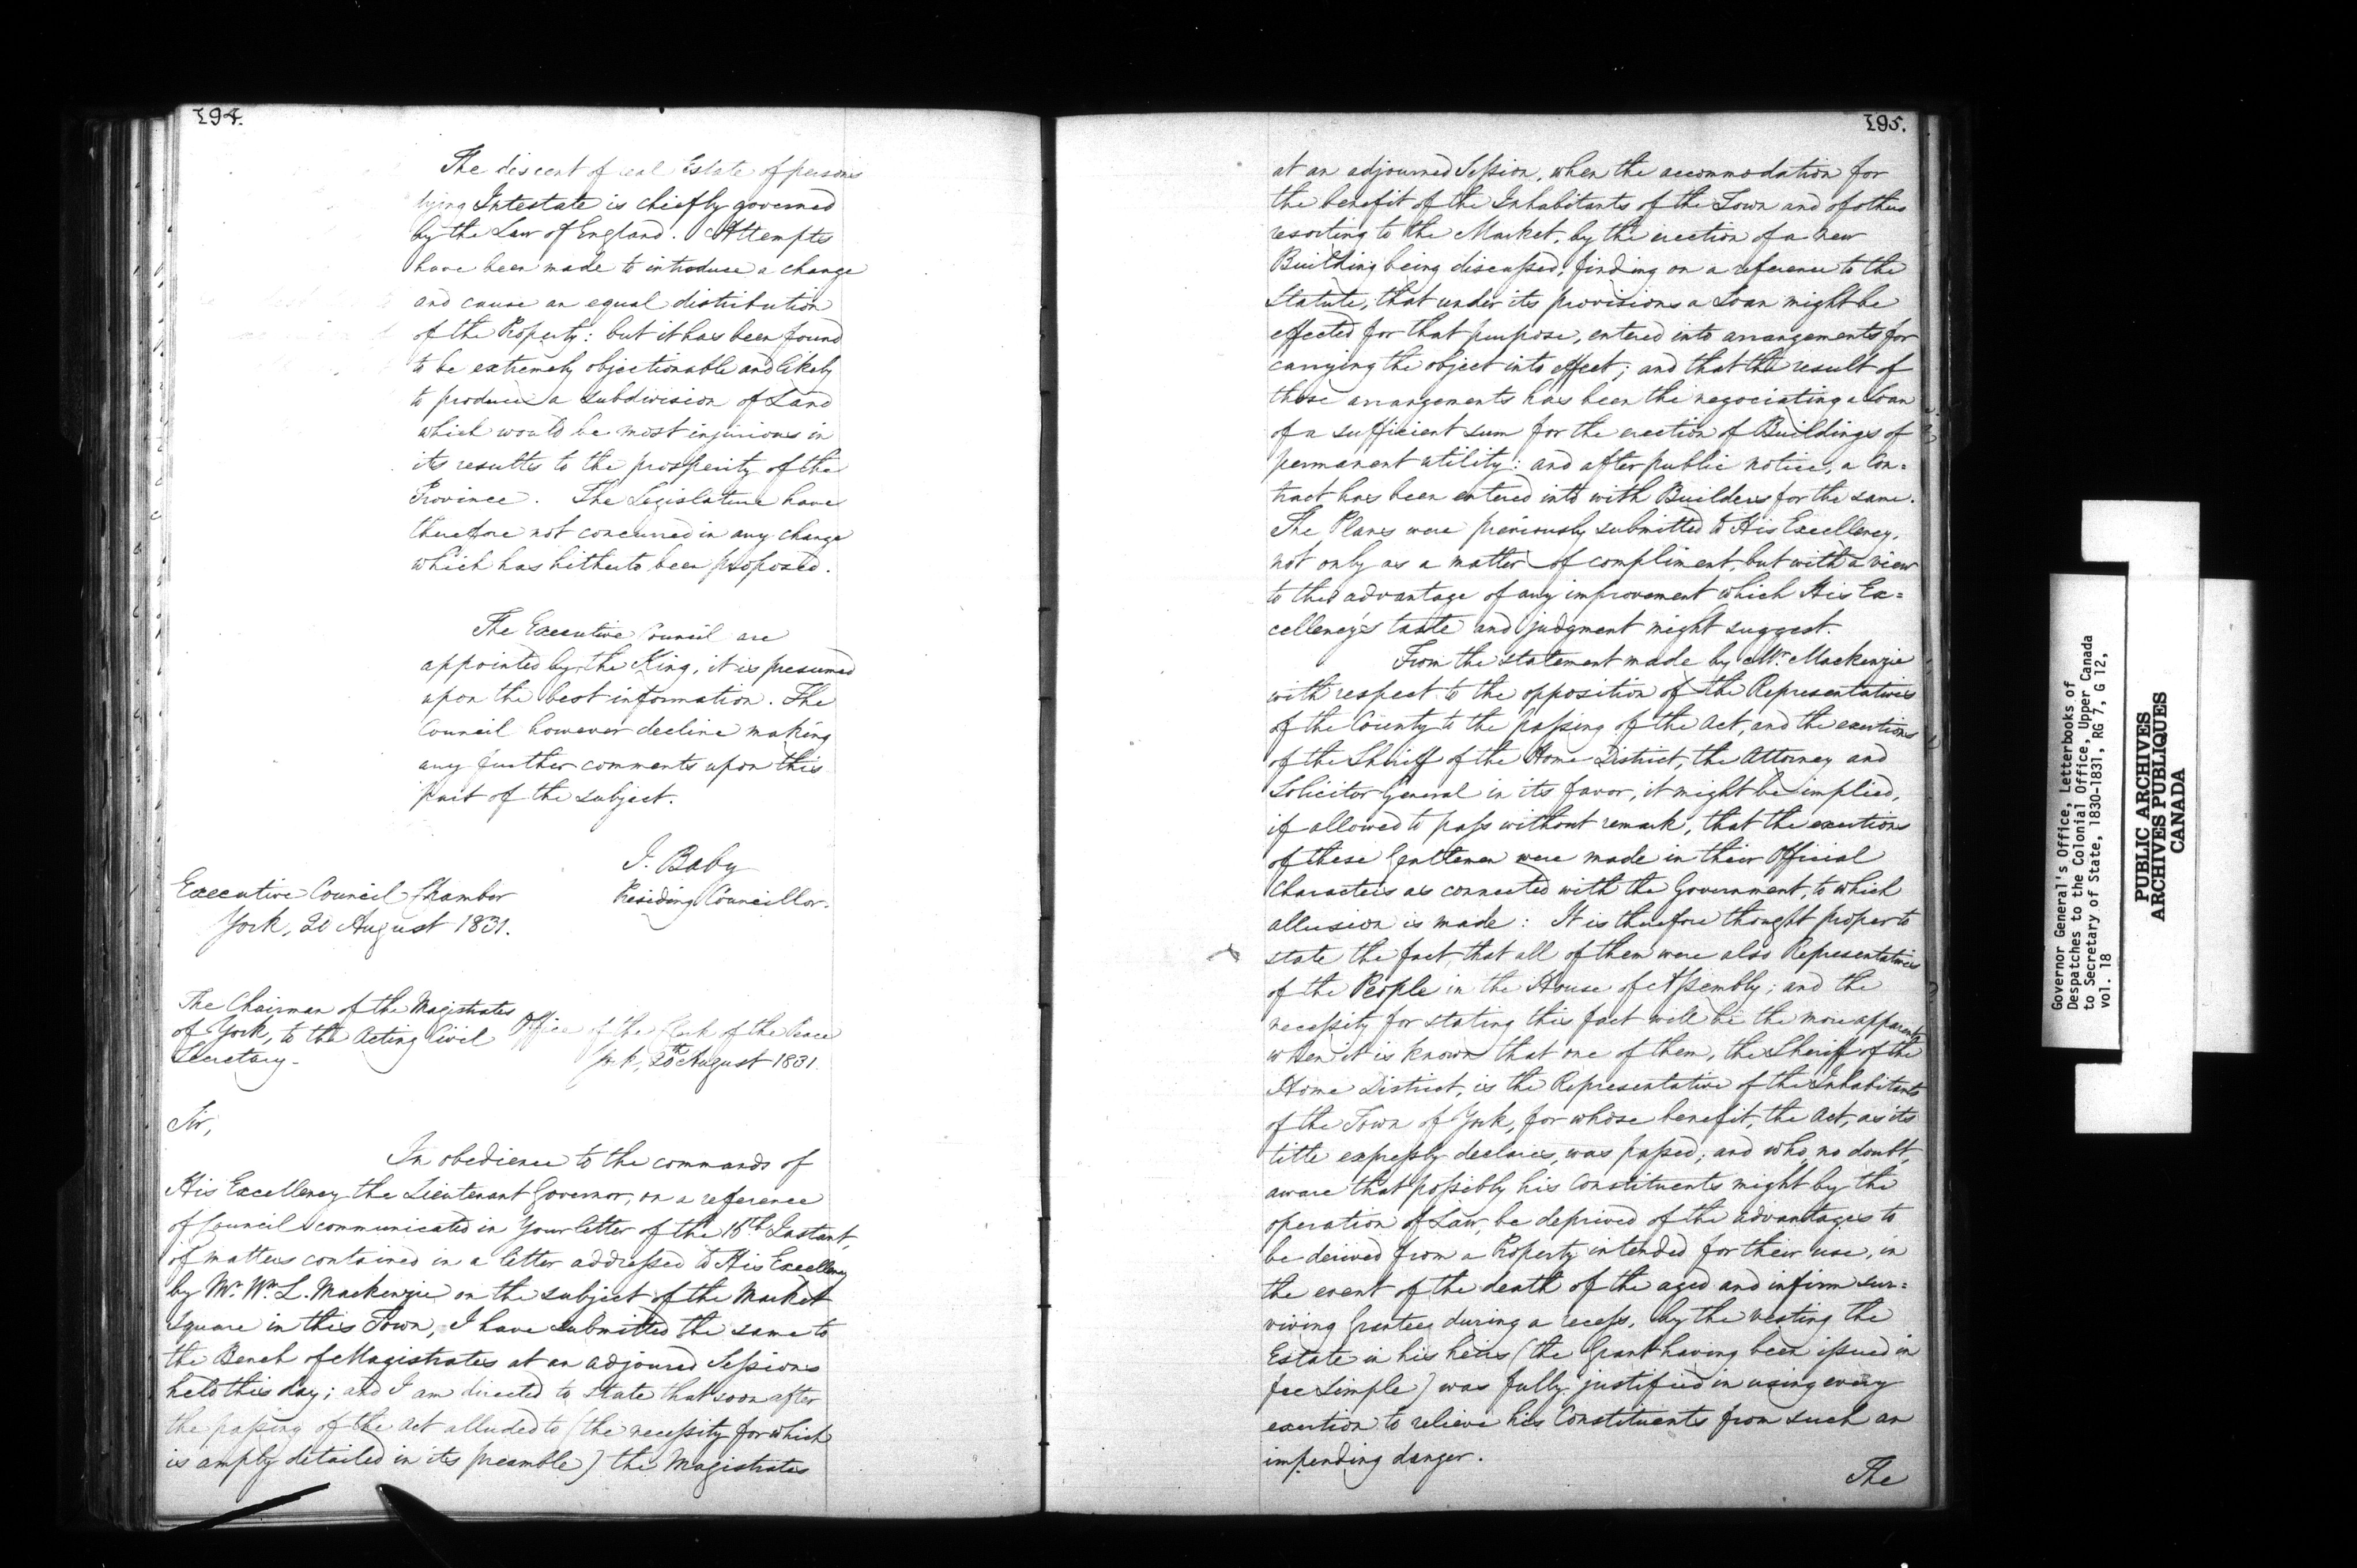 194.
The descent of real Estate of persons
dying Intestate is chiefly governed
by the Law of England. Attempts
have been made to introduce a change
and cause an equal distribution
of the Property: but it has been found
to be extremely objectionable and likely
to produce a subdivision of Land
which would be most injurious in
its results to the prosperity of the
Province. The Legislature have
therefore not concurred in any change
which has hitherto been proposed.
The Executive Council are
appointed by the King, it is presumed
upon the best information. The
Council however decline making
any further comments upon this
part of the subject.
J. Baby
Presiding Councillor.
Executive Council Chamber
York, 20 August 1831.
The Chairman of the Magistrates
of York, to the Acting Civil
Secretary.
Office of the Clerk of the Peace
York, 20th August 1831.
Sir,
In obedience to the commands of
His Excellency the Lieutenant Governor, on a reference
of Council communicated in Your letter of the 18th Instant,
of matters contained in a letter addressed to His Excellency
by Mr. Wm. L. Mackenzie on the subject of the Market
Square in this Town, I have submitted the same to
the Bench of Magistrates at an adjourned Sessions
held this day; and I am directed to state that soon after
the passing of the Act alluded to (the necessity for which
is amply detailed in its preamble) the Magistrates
195.
at an adjourned Session, when the accommodation for
the benefit of the Inhabitants of the Town and of others
resorting to the Market, by the erection of a new
Building being discussed, finding on a reference to the
Statute, that under its provisions a Loan might be
effected for that purpose, entered into arrangements for
carrying the object into effect; and that the result of
those arrangements has been the negociating a Loan
of a sufficient sum for the erection of Buildings of
permanent utility: and after public notice, a Con=
tract has been entered into with Builders for the same.
The Plans were previously submitted to His Excellency,
not only as a matter of compliment, but with a view
to the advantage of any improvement which His Ex=
cellency's taste and judgment might suggest.
From the statement made by Mr. Mackenzie
with respect to the opposition of the Representatives
of the County to the passing of the Act, and the exertions
of the Sheriff of the Home District, the Attorney and
Solicitor General in its favor, it might be implied,
if allowed to pass without remark, that the exertions
of these Gentlemen were made in their Official
Characters as connected with the Government, to which
allusion is made: It is therefore thought proper to
state the fact, that all of them were also Representatives
of the People in the House of Assembly; and the
necessity for stating this fact will be the more apparent,
when it is known that one of them, the Sheriff of the
Home District, is the Representative of the Inhabitants
of the Town of York, for whose benefit, the Act, as its
title expressly declares, was passed; and who, no doubt,
aware that possibly his Constituents might by the
operation of Law, be deprived of the advantages to
be derived from a Property intended for their use, in
the event of the death of the aged and infirm sur=
viving Grantee during a recess, by the vesting the
Estate in his heirs (the Grant having been issued in
fee simple) was fully justified in using every
exertion to relieve his Constituents from such an
impending danger.
The
Governor General's Office, Letterbooks of
Despatches to the Colonial Office, Upper Canada
to Secretary of State, 1830-1831, RG 7, G 12,
vol. 18
PUBLIC ARCHIVES
ARCHIVES PUBLIQUES
CANADA